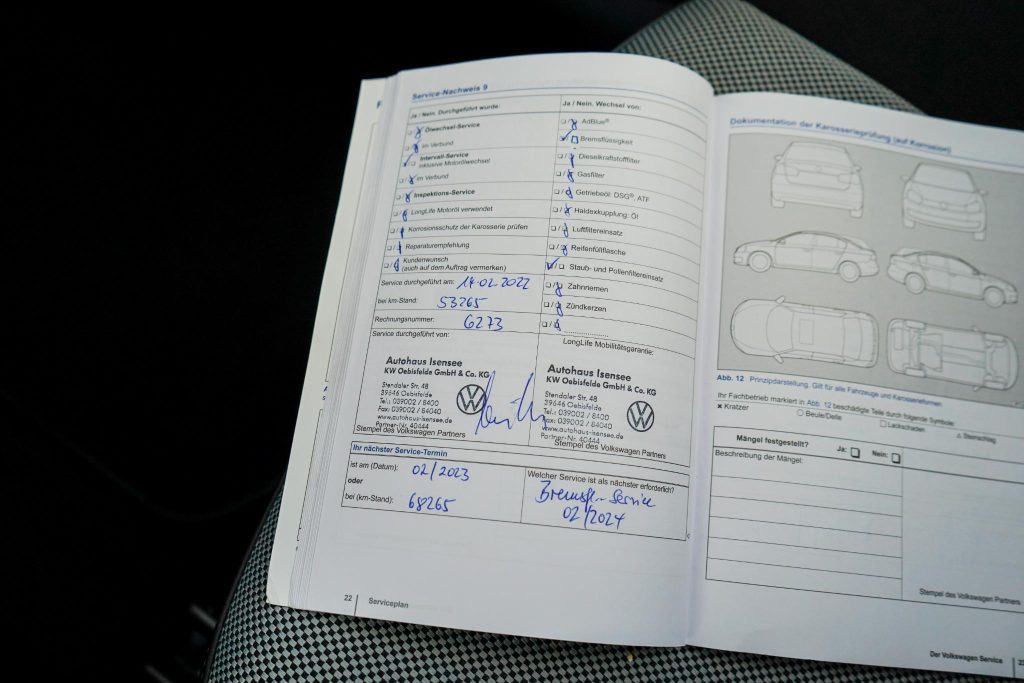 Service-Nachweis 9
Ja / Nein. Durchgeführt wurde:
Ölwechsel-Service
im Verbund
Intervall-Service
inklusive Motorölwechsel
im Verbund
Inspektions-Service
LongLife Motoröl verwendet
Korrosionsschutz der Karosserie prüfen
Reparaturempfehlung
Kundenwunsch
(auch auf dem Auftrag vermerken)
Service durchgeführt am: 14.02.2022
bei km-Stand: 53265
Rechnungsnummer: 6273
Service durchgeführt von:
Autohaus Isensee
KW Oebisfelde GmbH & Co. KG
Stendaler Str. 48
39646 Oebisfelde
Tel.: 039002 / 8400
Fax: 039002 / 84040
www.autohaus-isensee.de
Partner-Nr. 40444
Stempel des Volkswagen Partners
Ja / Nein. Wechsel von:
AdBlue®
Bremsflüssigkeit
Dieselkraftstofffilter
Gasfilter
Getriebeöl: DSG®, ATF
Haldexkupplung: Öl
Luftfiltereinsatz
Reifenfüllflasche
Staub- und Pollenfiltereinsatz
Zahnriemen
Zündkerzen
LongLife Mobilitätsgarantie:
Autohaus Isensee
KW Oebisfelde GmbH & Co. KG
Stendaler Str. 48
39646 Oebisfelde
Tel.: 039002 / 8400
Fax: 039002 / 84040
www.autohaus-isensee.de
Partner-Nr. 40444
Stempel des Volkswagen Partners
Ihr nächster Service-Termin
ist am (Datum): 02/2023
oder
bei (km-Stand): 68265
Welcher Service ist als nächster erforderlich?
Bremsfl.-Service
02/2024
22 Serviceplan
Dokumentation der Karosserieprüfung (auf Korrosion)
Abb. 12 Prinzipdarstellung. Gilt für alle Fahrzeuge und Karosserieformen.
Ihr Fachbetrieb markiert in Abb. 12 beschädigte Teile durch folgende Symbole:
× Kratzer ○ Beule/Delle □ Lackschaden △ Steinschlag
Mängel festgestellt? Ja: Nein:
Beschreibung der Mängel:
Stempel des Volkswagen Partners
Der Volkswagen Service